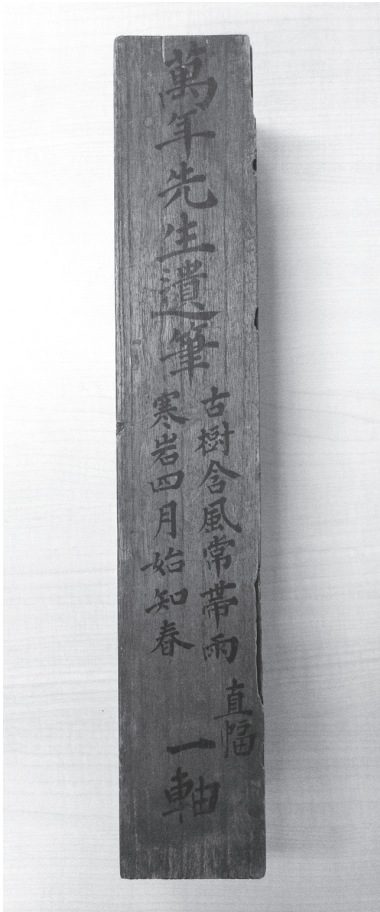 萬年先生遺筆
古樹含風常帶雨
寒岩四月始知春
直幅
一軸